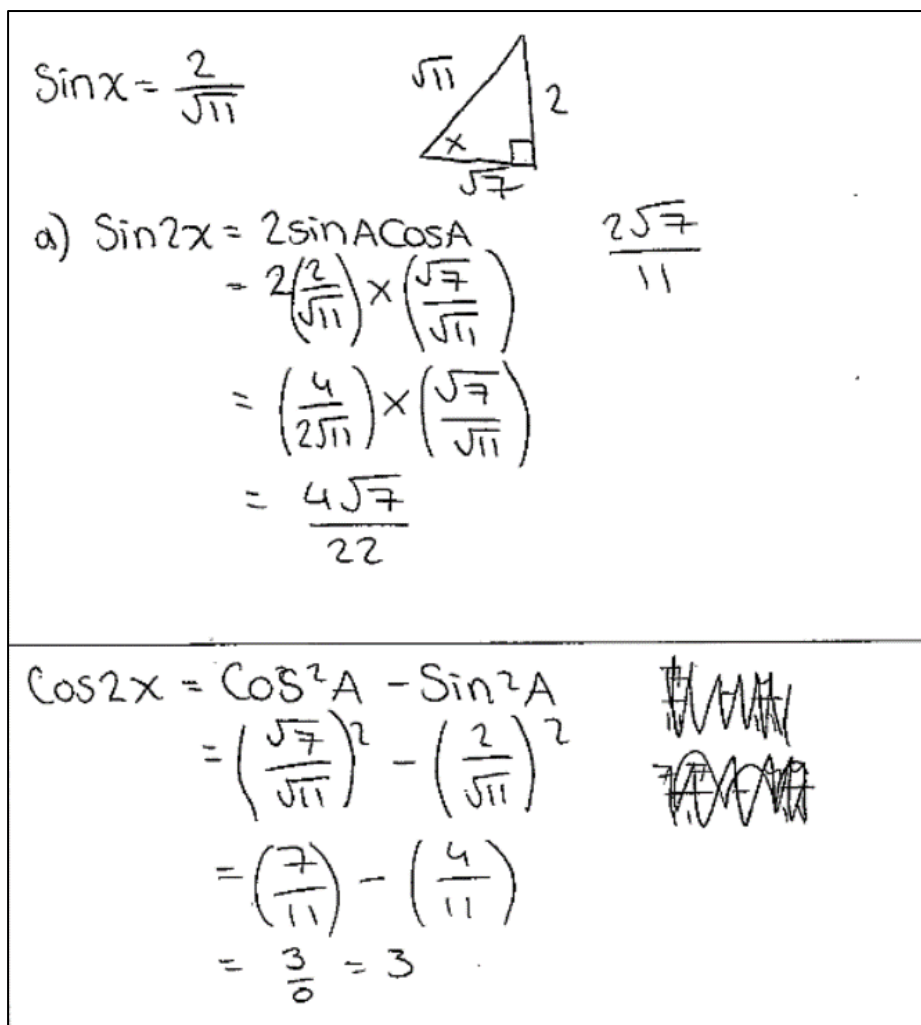 Sinx = 2/√11
√11
2
x
√7
a) Sin2x = 2sinAcosA
= 2(2/√11) × (√7/√11)
2√7/11
= (4/2√11) × (√7/√11)
= 4√7/22
Cos2x = Cos²A - Sin²A
= (√7/√11)² - (2/√11)²
= (7/11) - (4/11)
= 3/0 = 3